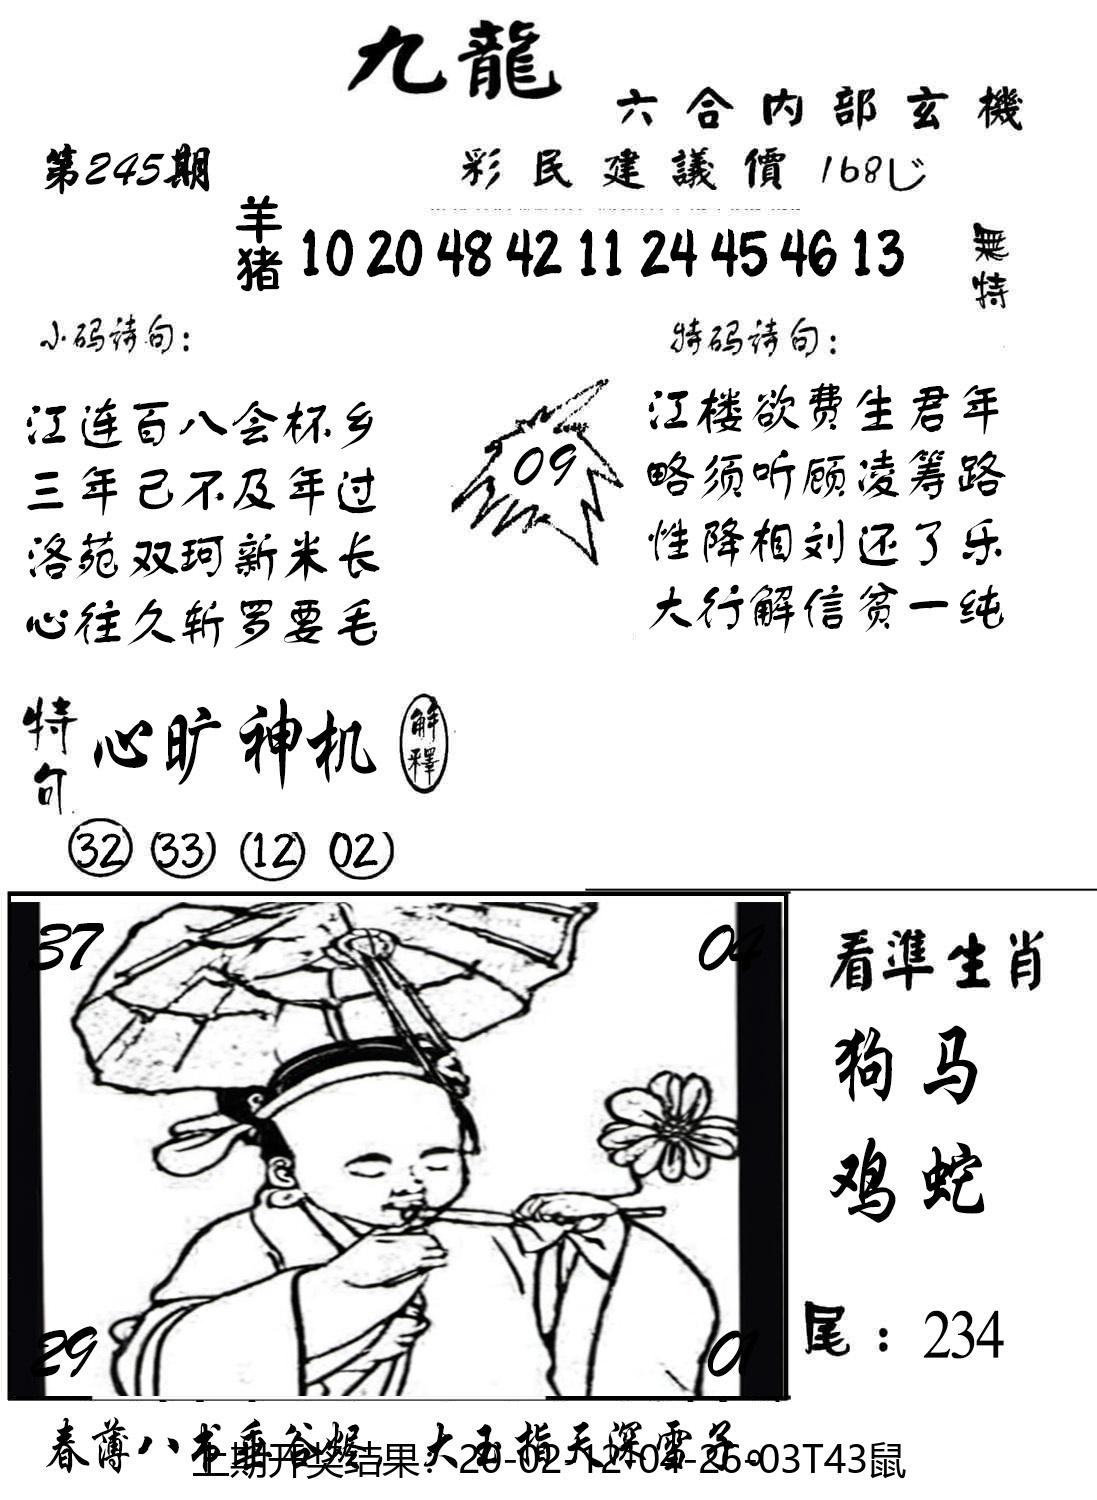 九龍
六合内部玄機
第245期
彩民建議價 168
羊猪 10 20 48 42 11 24 45 46 13
無特
小码诗句：
江连百八会杯乡
三年己不及年过
洛苑双珂新米长
心往久斩罗要毛
09
特码诗句：
江楼欲费生君年
略须听顾凌筹路
性降相刘还了乐
大行解信贫一纯
特句 心旷神机 解釋
32 33 12 02
37 04
29 01
看準生肖
狗马
鸡蛇
尾：234
春薄八书垂谷 大玉指天深雷
上期开奖结果：20-02-12-04-26-03T43鼠